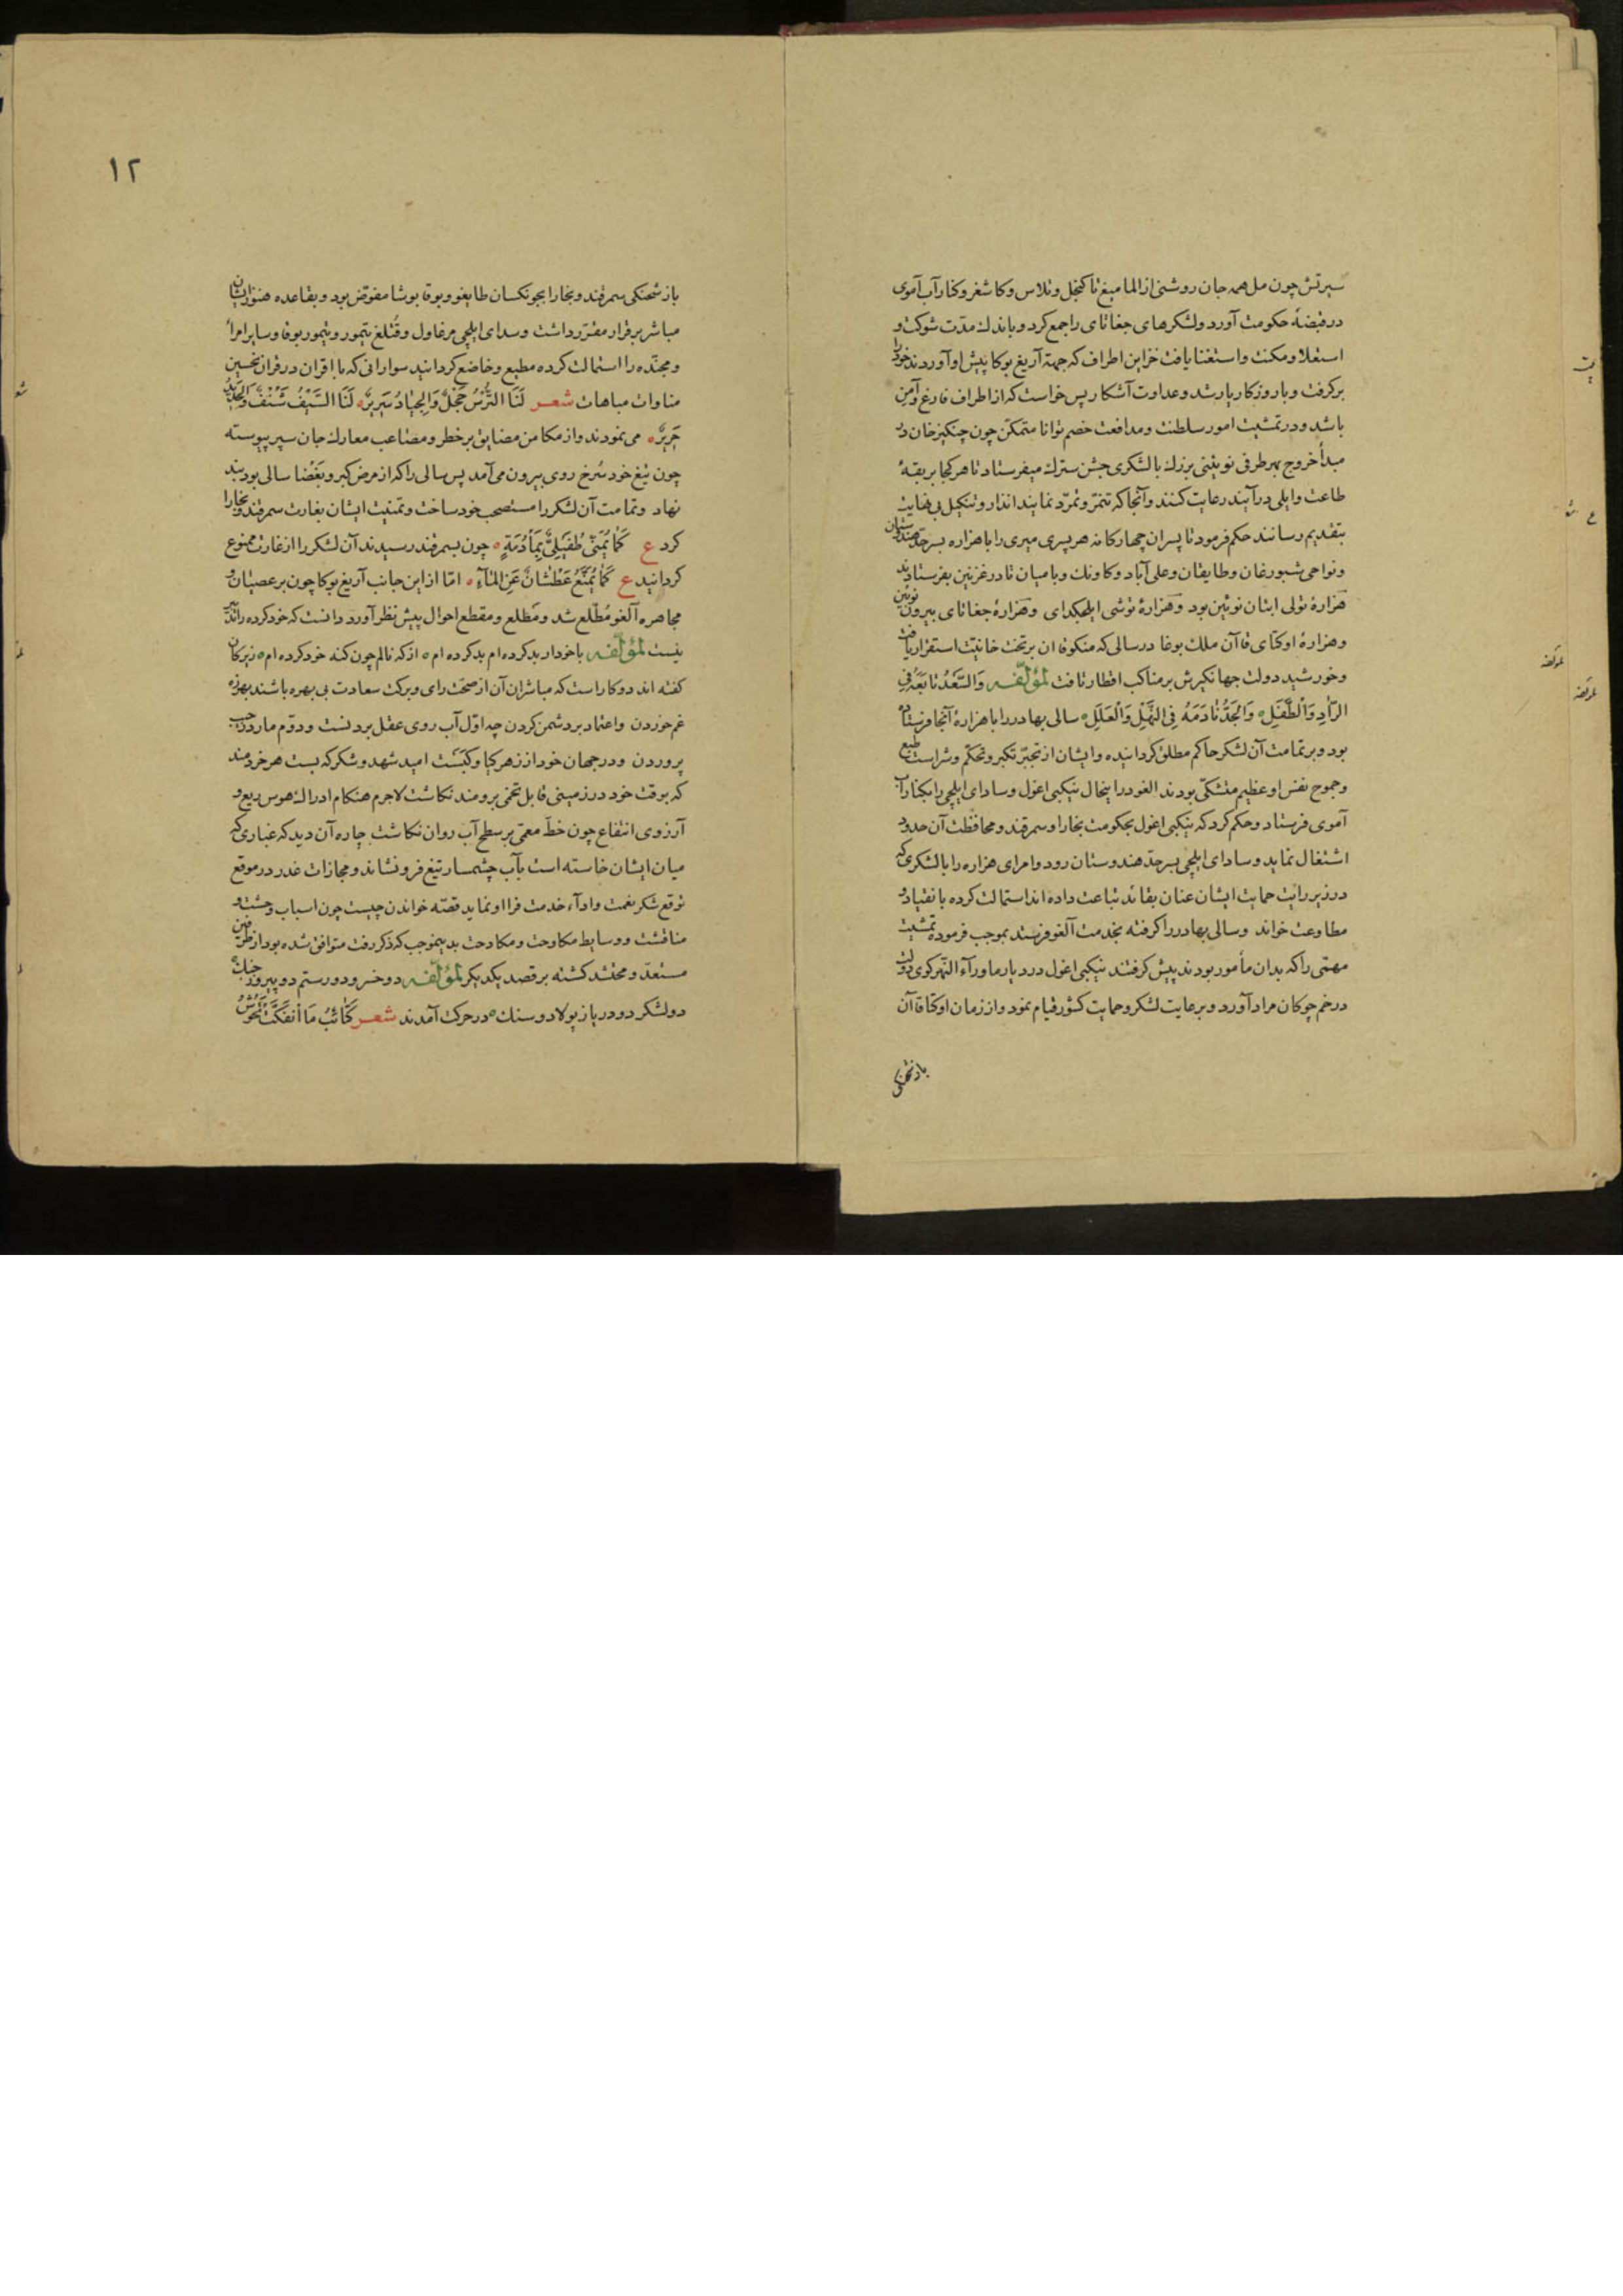 سیرتش چون مل همه جان روشنی از الما میغ تا کنجل و تلاس و کاشغر و کنار آب آموی
در قبضهٔ حکومت آورد و لشکرهای جغاتای را جمع کرد و باندک مدّت شوکت و
استعلا و مکنت و استغنا یافت خزاین اطراف که جهة آریغ بوکا پیش او آوردند خود
برکرفت و با روزکار یار شد و عداوت آشکار پس خواست که از اطراف فارغ و آمن
باشد و در تمشیت امور سلطنت و مدافعت خصم توانا متمکن چون چنکیز خان در
مبدأ خروج بهر طرفی نویینی بزرك با لشکری جشن سترك میفرستاد تا هر کجا بربقهٔ
طاعت و ایلی در آیند رعایت کنند و آنجا که تنمّر و تمرّد نمایند انذار و تنکیل بی نهایت
بتقدیم رسانند حکم فرمود تا پسران چهارکانه هر پسری میری را با هزاره بسرحدّ هندوستان
و نواحی شبورغان و طایقان و علی آباد و کاونك و بامیان تا در غزنین بفرستادند
هزارهٔ تولی ایشان نویین بود و هزارهٔ توشی ایلهکدای و هزارهٔ جغاتای بیرون نویین
و هزارهٔ اوکتای قاآن ملك بوغا در سالی که منکوقاآن بر تخت خانیّت استقرار یافت
و خورشید دولت جهانکیرش بر مناکب اقطار تافت لمؤلّفه وَالسَّعْدُ تَابَعَهُ فِی
الرَّأدِ وَالطَّفَلِ ه وَالْجَدُّ نَادَمَهُ فِی النَّهَلِ وَالْعَلَلِ ه سالی بهادر را با هزارهٔ آنجا فرستاده
بود و بر تمامت آن لشکر حاکم مطلق کردانیده و ایشان از تجبّر تکبر و تحکّم و شراست طبع
و جموح نفس او عظیم متشکّی بودند الغو در اینحال نیکبی اغول و سادای ایلچی را بکنار آب
آموی فرستاد و حکم کرد که نیکبی اغول بحکومت بخارا و سمرقند و محافظت آن حدود
اشتغال نماید و سادای ایلچی بسرحدّ هندوستان رود و امرای هزاره را با لشکری که
در زیر رایت حمایت ایشان عنان بقائد تباعت داده اند استمالت کرده با نقیاد و
مطاوعت خواند و سالی بهادر را کرفته بخدمت آلغو فرستد بموجب فرموده تمشیت
مهمّی را که بدان مأمور بودند پیش کرفتند نیکبی اغول در دیار ماورآء النّهر کوی دولت
در خم چوکان مراد آورد و برعایت لشکر و حمایت کشور قیام نمود و از زمان اوکتا قاآن
باز شحنکی
۱۲
باز شحنکی سمرقند و بخارا بجونکسان طایغو و بوقا بوشا مفوّض بود و بقاعده هنوز ایشان
مباشر برقرار مقرّر داشت و سدای ایلچی مرغاول و قُتلغ تیمور و تیمور بوقا و سایر امرا
و مجنّده را استمالت کرده مطیع و خاضع کردانید سوارانی که با اقران در قران تحسین
مناوات مباهات شعر لَنَا التُّرْسُ حَجْلٌ وَالْجِیَادُ سَرِیرٌ ه لَنَا السَّیْفُ شَنْفٌ وَالْحَدِیدُ
حَرِیرٌ ه می نمودند و از مکامن مضایق پر خطر و مصاعب معارك جان سپر پیوسته
چون تیغ خود سُرخ روی بیرون می آمد پس سالی را که از مرض کبر و بَغْضا سالی بود بند
نهاد و تمامت آن لشکر را مستصحب خود ساخت و تمنیت ایشان بغارت سمرقند و بخارا
کرد ع کَمَا یُمَنّٰی طُفَیْلِیٌّ بِمَأدُبَةٍ ه چون بسمرقند رسیدند آن لشکر را از غارت ممنوع
کردانید ع کَمَا یُمَنَّعُ عَطْشَانٌ عَنِ الْمَآءِ ه امّا از این جانب آریغ بوکا چون بر عصیان و
مجاهره آلغو مُطّلع شد و مَطلع و مقطع احوال پیش نظر آورد دانست که خود کرده را تدبیر
نیست لمؤلّفه با خود ار بد کرده ام بد کرده ام ه از که نالم چون کنه خود کرده ام ه زیرکان
کفته اند دو کار است که مباشران آن از صحّت رای و برکت سعادت بی بهره باشند بهرزه
غم خوردن و اعتماد بر دشمن کردن چه اوّل آب روی عقل بردنست و دوّم مار در جیب
پروردن و در جهان خود از زهر کیا و کَبَست امید شهد و شکر که بست هر خردمند
که بوقت خود در زمینی قابل تخمی برومند نکاشت لاجرم هنکام ادراك هوس ریع و
آرزوی انتفاع چون خطّ معمّی بر سطح آب روان نکاشت چاره آن دید که غباری که
میان ایشان خاسته است بآب چشمسار تیغ فرو نشاند و مجازات غدر در موقع
توقع شکر نعمت و ادآء خدمت فرا او نماید قصّه خواندن چیست چون اسباب وحشت و
مناقشت و وسایط مکاوحت و مکاوحت بدینموجب که ذکر رفت متوافق شده بود از طرفین
مستعدّ و محتشد کشته بر قصد یکدیکر لمؤلّفه دو خسرو دو رستم دو پیروز جنك ه
دو لشکر دو دریا ز پولاد و سنك ه در حرکت آمدند شعر کَتَائِبُ مَا أنْفَکَّتْ تَجُوسُ